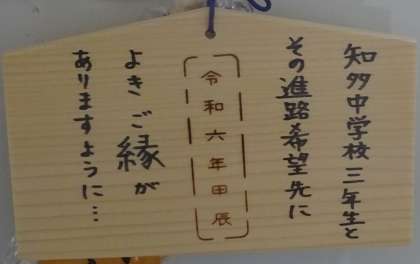 知多中学校三年生と
その進路希望先に
令和六年甲辰
よきご縁が
ありますように…